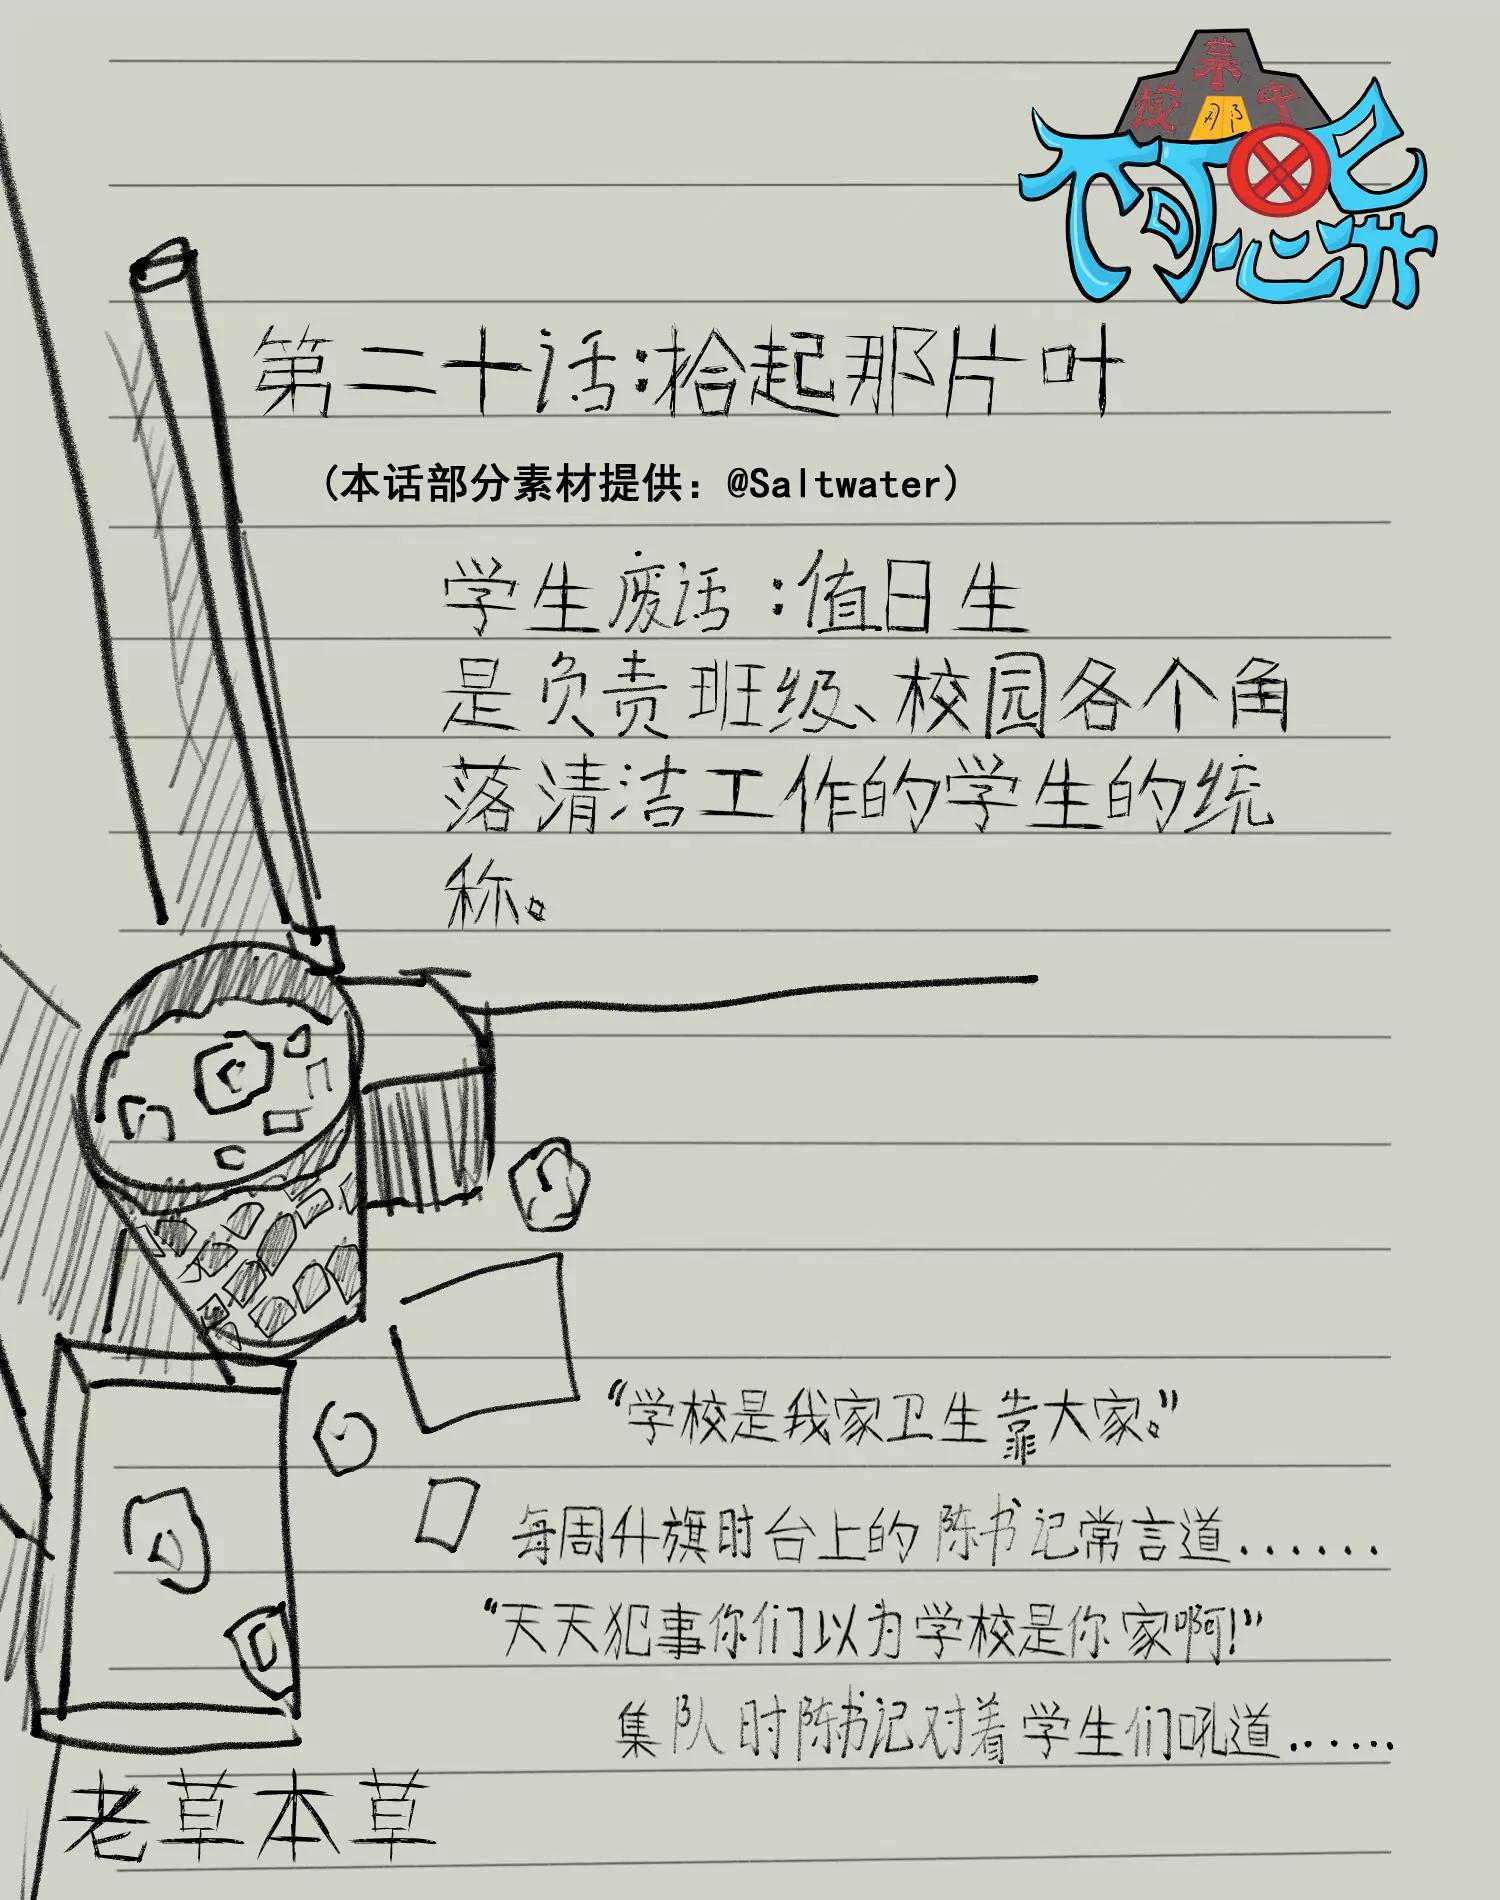 某校那中
不可思异
第二十话:拾起那片叶
(本话部分素材提供: @Saltwater)
学生废话:值日生
是负责班级、校园各个角
落清洁工作的学生的统
称。
“学校是我家卫生靠大家。”
每周升旗时台上的陈书记常言道......
“天天犯事你们以为学校是你家啊!”
集队时陈书记对着学生们吼道......
老草本草